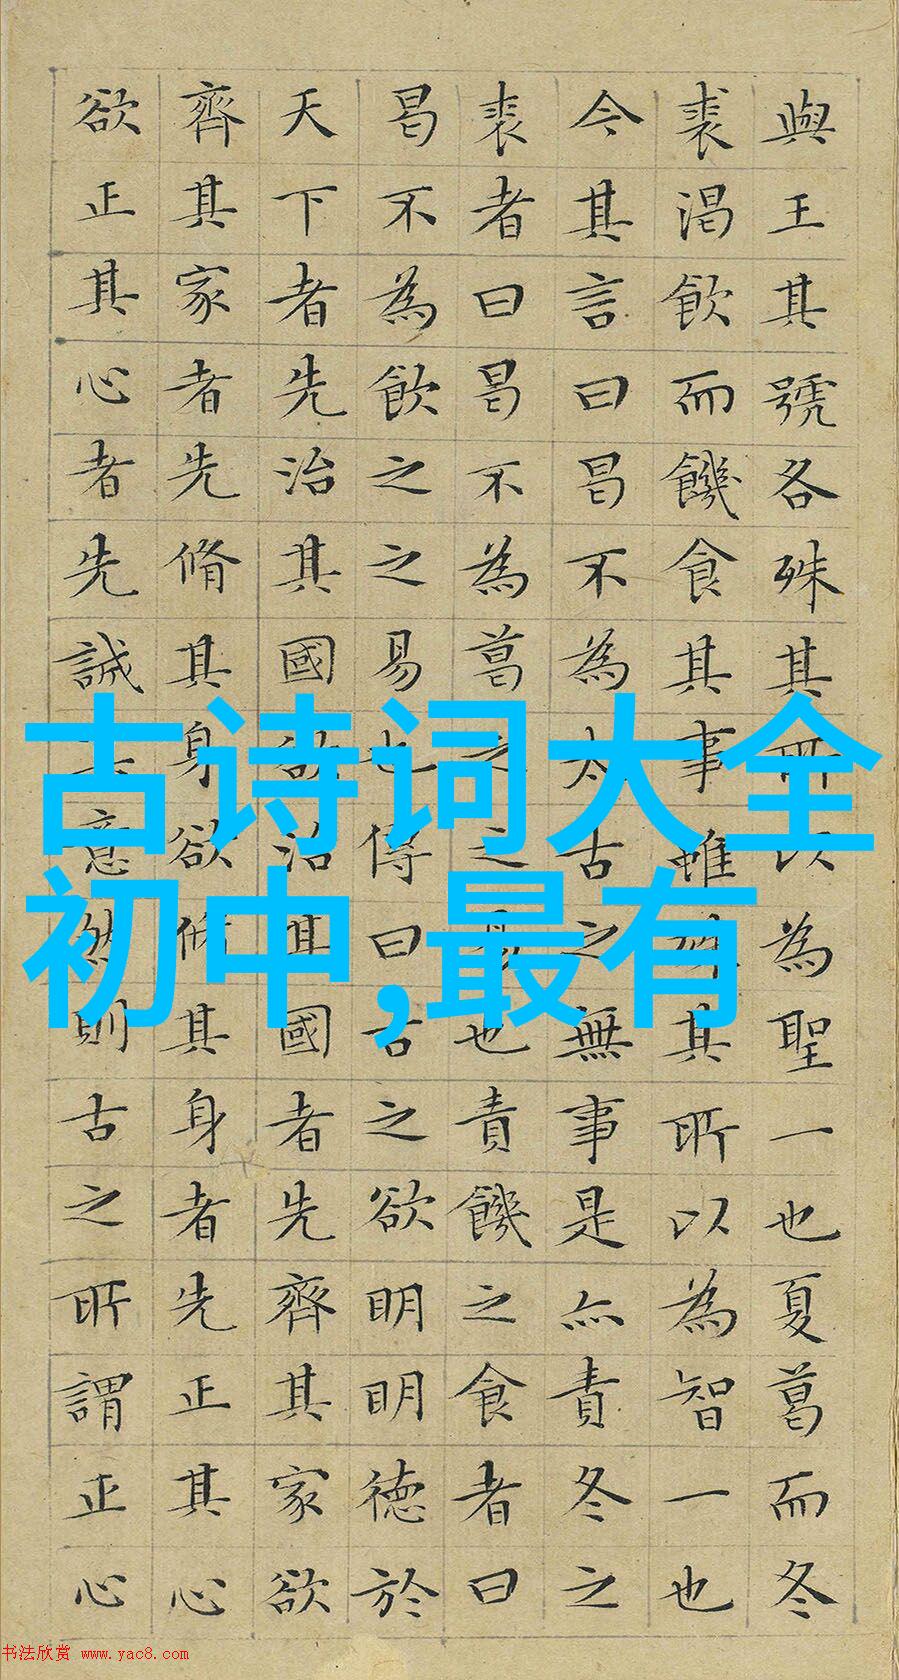 與王其號各殊其所以為聖一也夏葛而冬
裘渴飲而饑食其事雖其所以為智一也
今其言曰曷不為太古之無事是亦責冬之
裘者曰曷不為葛之之易也責饑之食者曰
曷不為飲之之易也傳曰古之欲明明德於
天下者先治其國欲治其國者先齊其家欲
齊其家者先脩其身欲脩其身者先正其心
欲正其心者先誠意然則古之所謂正心
古诗词大全
初中,最有
书法欣赏 www.yac8.com